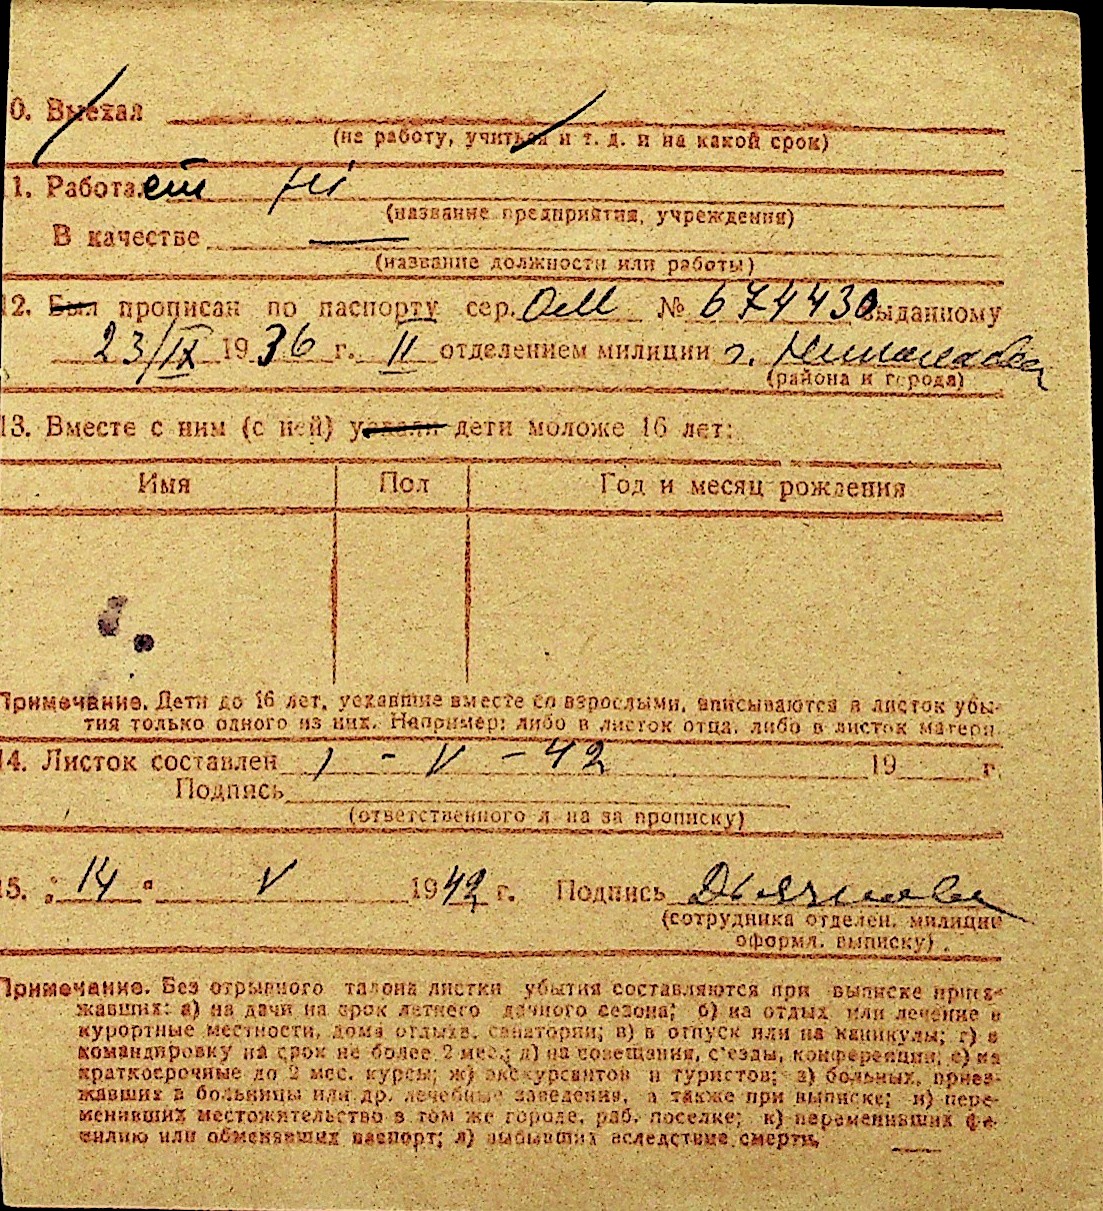 0. Выехал
(не работу, учиться и т. д. и на какой срок)
1. Работает
(название предприятия, учреждения)
В качестве —
(название должности или работы)
12. Был прописан по паспорту сер. ОМ № 674430 выданному
23/IX 1936 г. II отделением милиции г. Николаева
(района и города)
13. Вместе с ним (с ней) уехали дети моложе 16 лет:
Имя Пол Год и месяц рождения
Примечание. Дети до 16 лет, уехавшие вместе со взрослыми, вписываются в листок убы-
тия только одного из них. Например: либо в листок отца, либо в листок матери.
14. Листок составлен 1 - V - 42 19 г.
Подпись
(ответственного л на за прописку)
15. „14" V 1942 г. Подпись
(сотрудника отделен. милиции
оформл. выписку)
Примечание. Без отрывного талона листки убытия составляются при выписке приез-
жавших: а) на дачи на срок летнего дачного сезона; б) на отдых или лечение в
курортные местности, дома отдыха, санатории; в) в отпуск или на каникулы; г) в
командировку на срок не более 2 мес.; д) на совещания, съезды, конференции; е) на
краткосрочные до 2 мес. курсы; ж) экскурсантов и туристов; з) больных, приез-
жавших в больницы или др. лечебные заведения, а также при выписке; и) пере-
менивших местожительство в том же городе, раб. поселке; к) переменивших фа-
милию или обменявших паспорт; л) выбывших вследствие смерти.